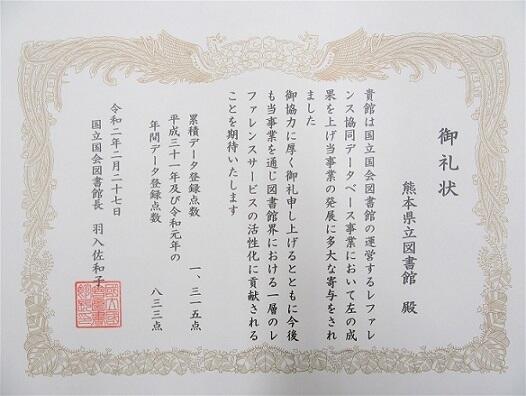 御礼状
熊本県立図書館 殿
貴館は国立国会図書館の運営するレファレ
ンス協同データベース事業において左の成
果を上げ当事業の発展に多大な寄与をされ
ました
御協力に厚く御礼申し上げるとともに今後
も当事業を通じ図書館界における一層のレ
ファレンスサービスの活性化に貢献される
ことを期待いたします
累積データ登録点数 一、三一五点
平成三十一年及び令和元年の
年間データ登録点数 八三三点
令和二年二月二十七日
国立国会図書館長 羽入佐和子